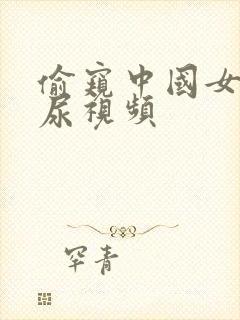 偷窺中國女
尿視頻
罕青